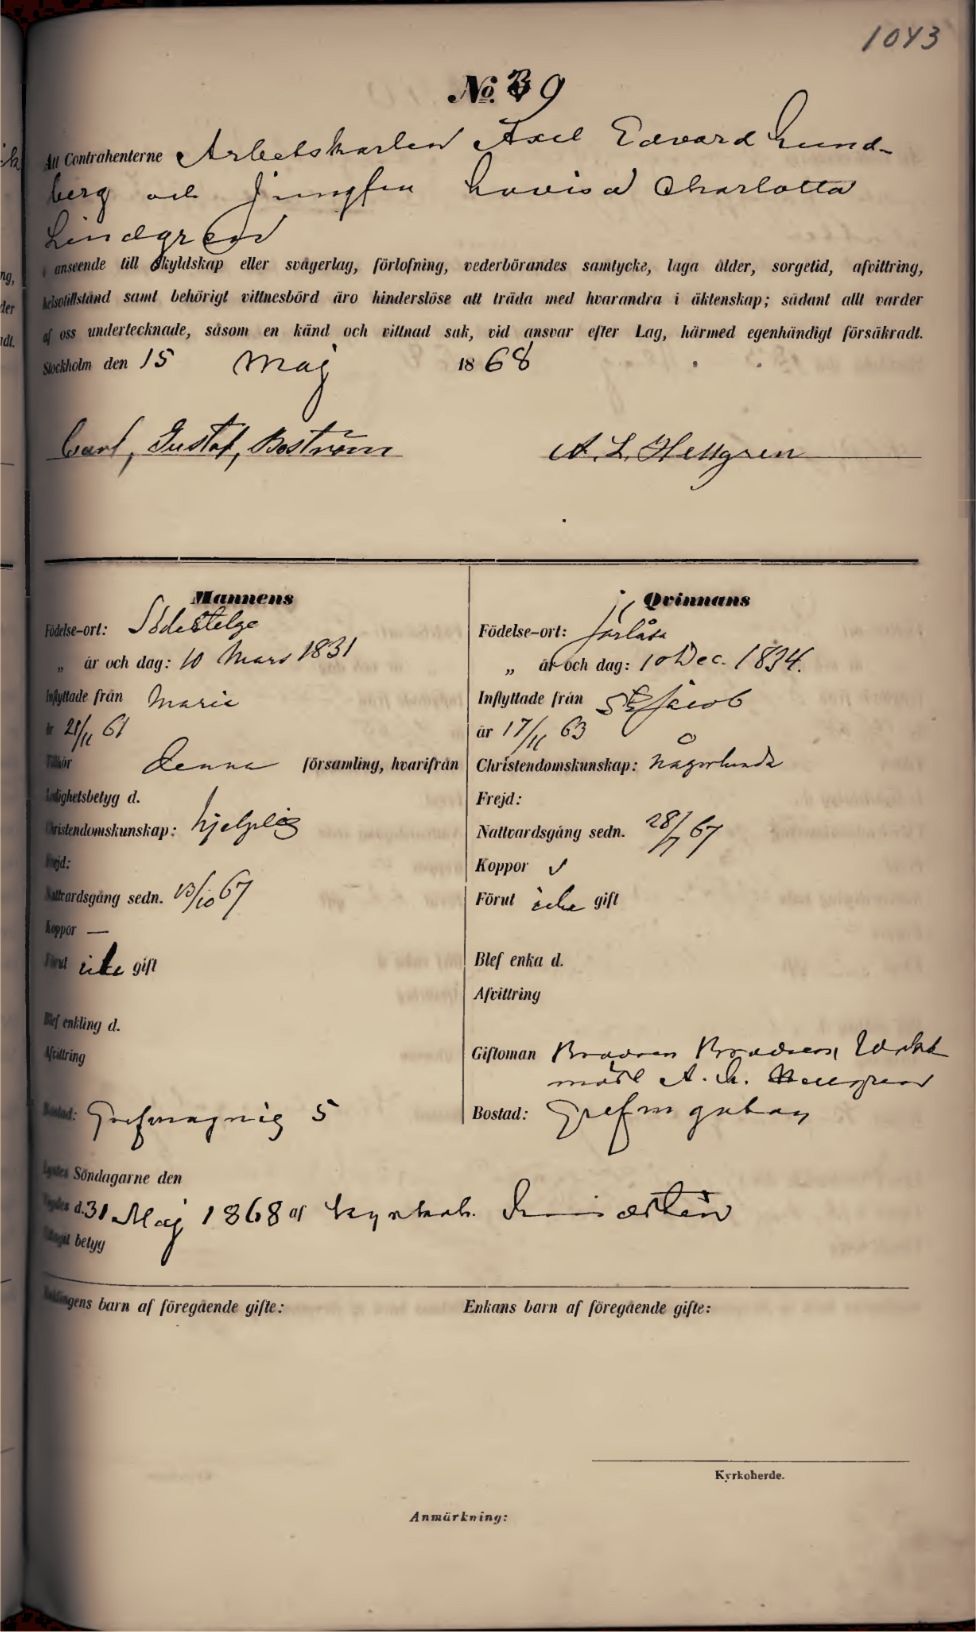 1043
No. 39
Att Contrahenterne Arbetskarlen Axel Edvard Lund-
berg och Jungfru Lovisa Charlotta
Lindgren
i anseende till skyldskap eller svågerlag, förlofning, vederbörandes samtycke, laga ålder, sorgetid, afvittring,
helsotillstånd samt behörigt vittnesbörd äro hinderslöse att träda med hvarandra i äktenskap; sådant allt varder
af oss undertecknade, såsom en känd och vittnad sak, vid ansvar efter Lag, härmed egenhändigt försäkradt.
Stockholm den 15 Maj 1868
Carl, Gustaf, Boström A. L. Hellgren
Mannens
Födelse-ort: Södertelge
„ år och dag: 10 Mars 1831
Inflyttade från Maria
år 21/11 61
Tillhör denna församling, hvarifrån
Ledighetsbetyg d.
Christendomskunskap: hjelplig
Frejd:
Nattvardsgång sedn. 13/10 67
Koppor —
Förut icke gift
Blef enkling d.
Afvittring
Bostad: Grefmagnig 5
Qvinnans
Födelse-ort: Jerlåsa
„ år och dag: 10 Dec. 1834.
Inflyttade från St Jacob
år 17/11 63
Christendomskunskap: någorlunda
Frejd:
Nattvardsgång sedn. 28/7 67
Koppor
Förut icke gift
Blef enka d.
Afvittring
Giftoman Brodren
A. L. Hellgren
Bostad: Grefm gatan
Lystes Söndagarne den
Vigdes d. 31 Maj 1868 af kyrkoh.
Uttagit betyg
Enklingens barn af föregående gifte: Enkans barn af föregående gifte:
Kyrkoherde.
Anmärkning: